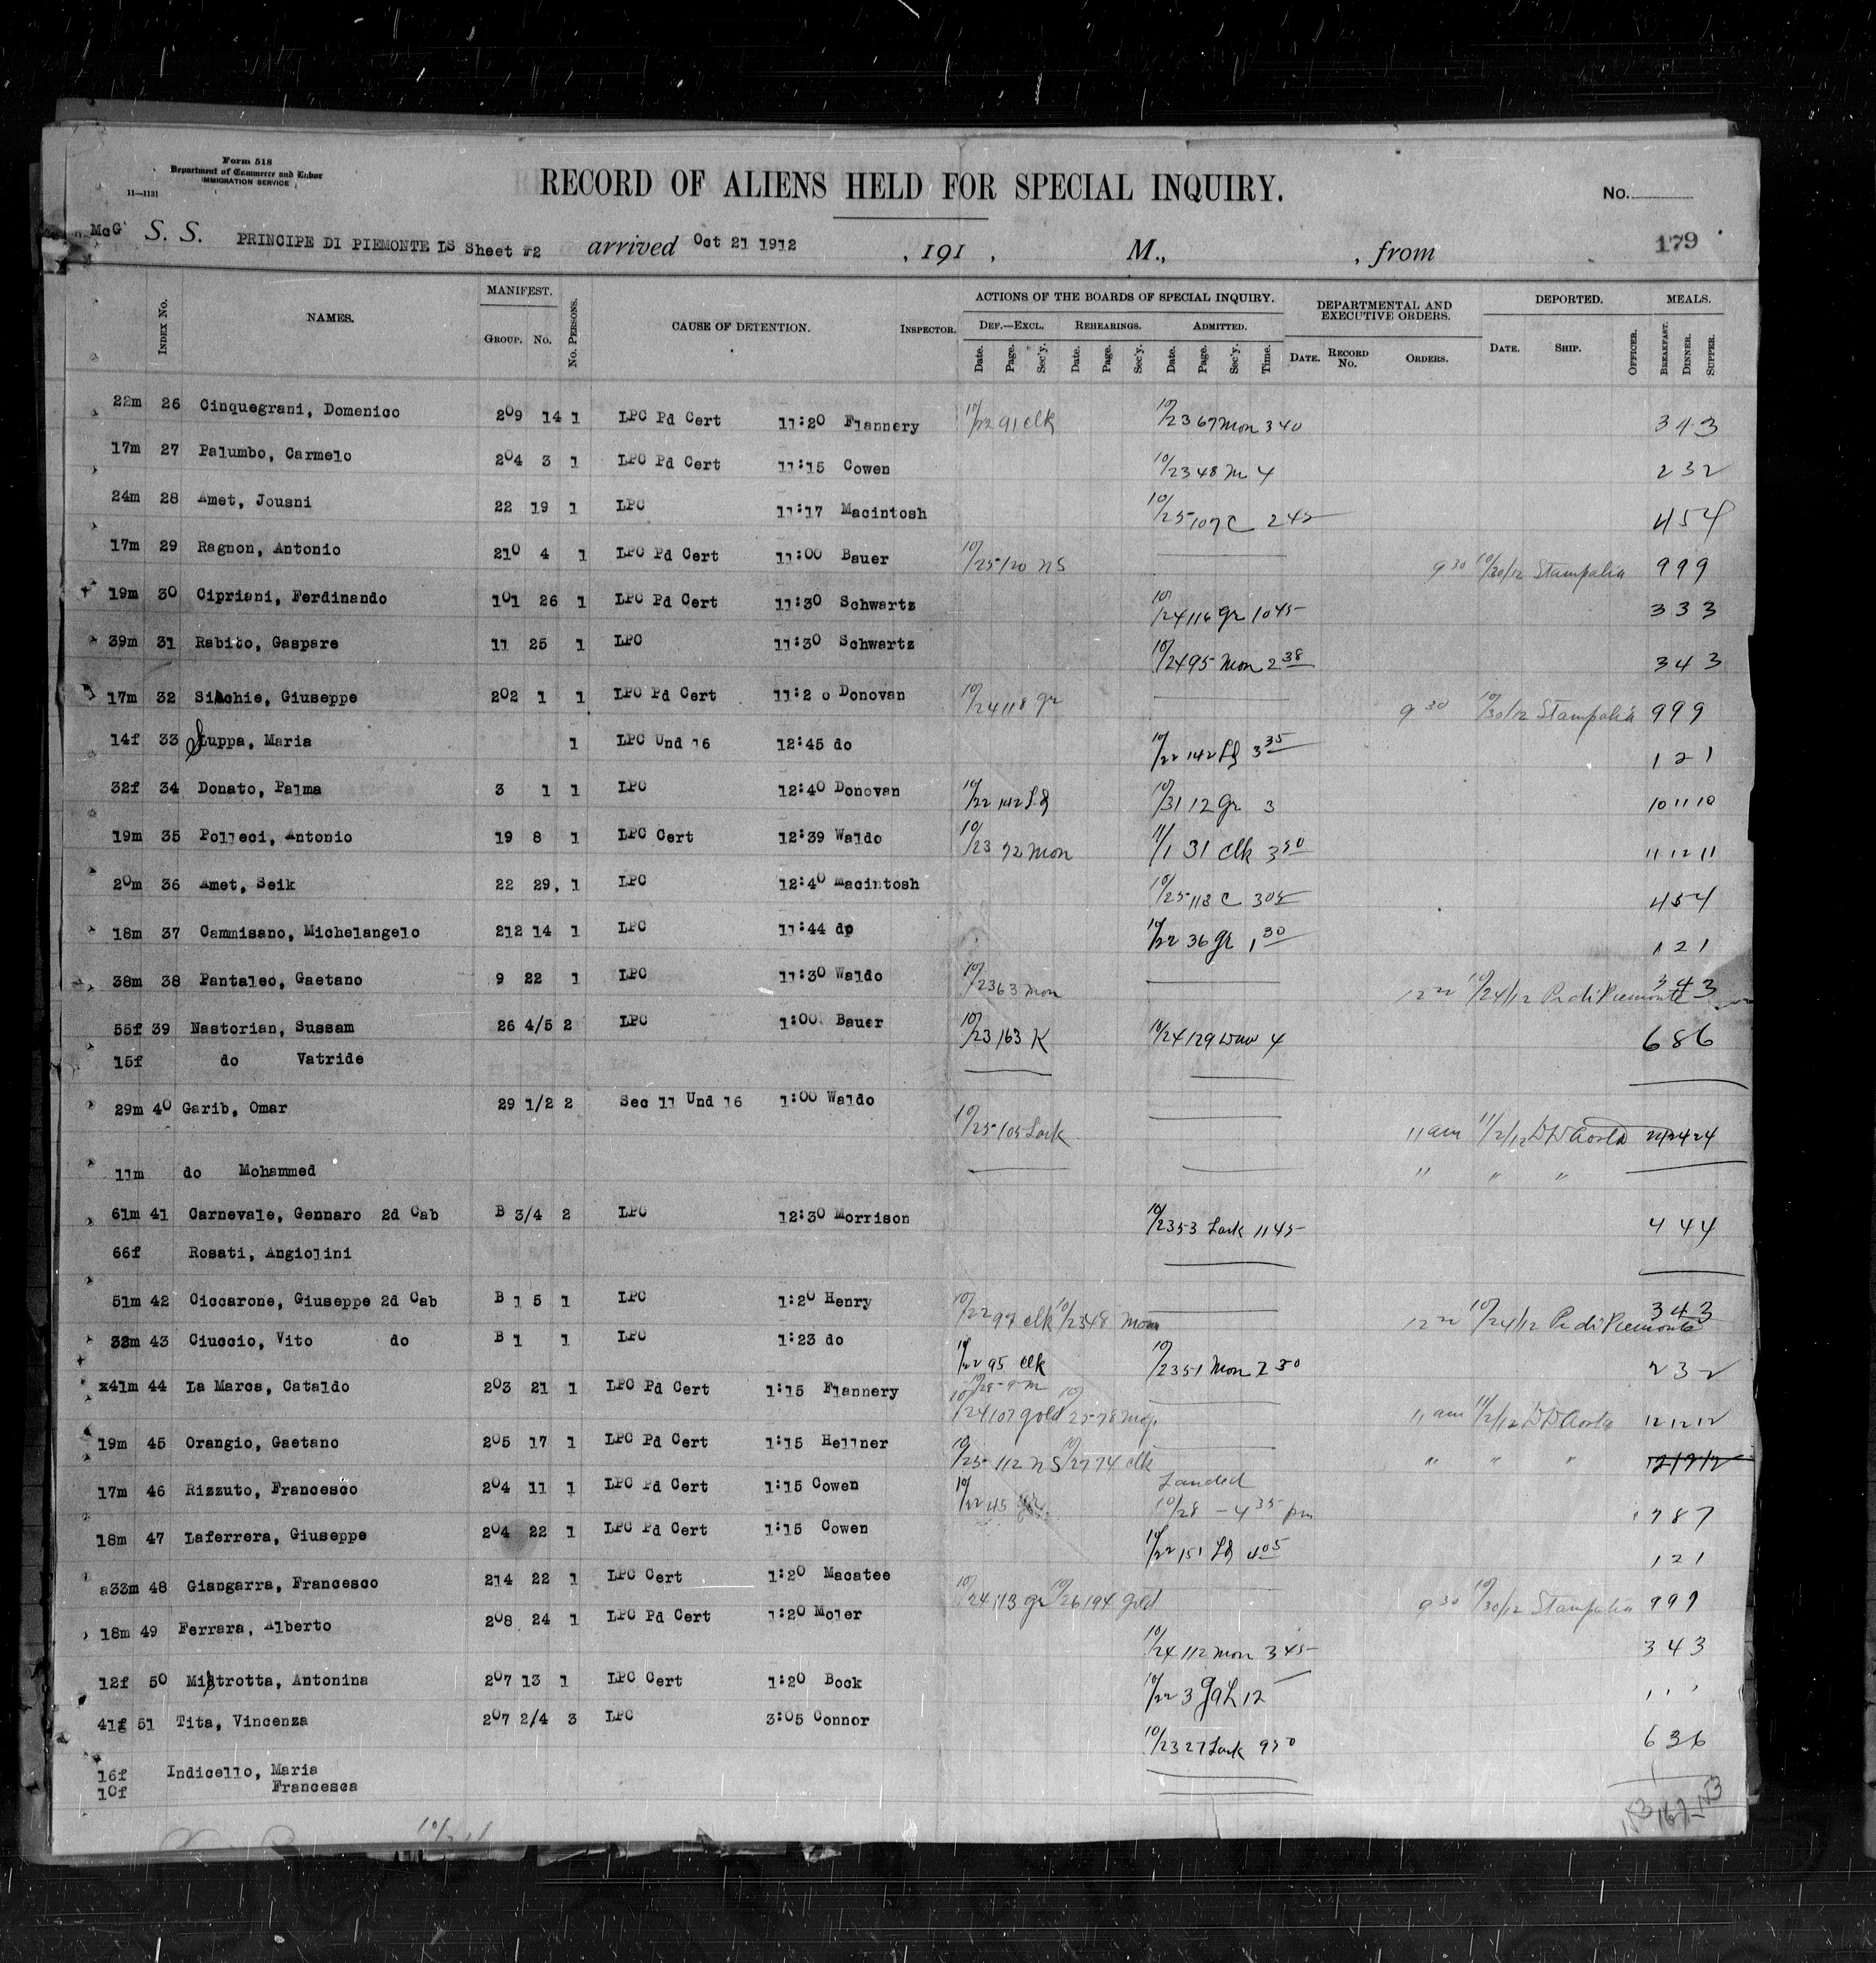 Form 518
Department of Commerce and Labor
IMMIGRATION SERVICE
11—1131
RECORD OF ALIENS HELD FOR SPECIAL INQUIRY.
No.
McG S. S. PRINCIPE DI PIEMONTE LS Sheet #2 arrived Oct 21 1912 , 191 , M., , from 179
INDEX No. NAMES. MANIFEST. GROUP. No. No. PERSONS. CAUSE OF DETENTION. INSPECTOR. ACTIONS OF THE BOARDS OF SPECIAL INQUIRY. DEPARTMENTAL AND EXECUTIVE ORDERS. DEPORTED. MEALS.
DEF.—EXCL. REHEARINGS. ADMITTED.
Date. Page. Sec'y. Date. Page. Sec'y. Date. Page. Sec'y. Time. DATE. RECORD No. ORDERS. DATE. SHIP. OFFICER. BREAKFAST. DINNER. SUPPER.
22m 26 Cinquegrani, Domenico 209 14 1 LPC Pd Cert 11:20 Flannery 10/22 91 clk 10/23 67 Mon 340 3 4 3
17m 27 Palumbo, Carmelo 204 3 1 LPC Pd Cert 11:15 Cowen 10/23 48 M 4 2 3 2
24m 28 Amet, Jousni 22 19 1 LPC 11:17 Macintosh 10/25 107 C 245 4 5 4
17m 29 Ragnon, Antonio 210 4 1 LPC Pd Cert 11:00 Bauer 10/25 120 NS 9 30 10/30/12 Stampalia 9 9 9
19m 30 Cipriani, Ferdinando 101 26 1 LPC Pd Cert 11:30 Schwartz 10/24 116 gr 1045 3 3 3
39m 31 Rabito, Gaspare 11 25 1 LPC 11:30 Schwartz 10/24 95 Mon 2 38 3 4 3
17m 32 Silchie, Giuseppe 202 1 1 LPC Pd Cert 11:2 0 Donovan 10/24 118 gr 9 30 10/30/12 Stampalia 9 9 9
14f 33 Luppa, Maria 1 LPC Und 16 12:45 do 10/22 142 Lg 3 35 1 2 1
32f 34 Donato, Palma 3 1 1 LPC 12:40 Donovan 10/22 142 Lg 10/31 12 Gr 3 10 11 10
19m 35 Polleci, Antonio 19 8 1 LPC Cert 12:39 Waldo 10/23 72 Mon 11/1 31 clk 3 50 11 12 11
20m 36 Amet, Seik 22 29, 1 LPC 12:40 Macintosh 10/25 113 C 305 4 5 4
18m 37 Cammisano, Michelangelo 212 14 1 LPC 11:44 do 10/22 36 gr 1 30 1 2 1
38m 38 Pantaleo, Gaetano 9 22 1 LPC 11:30 Waldo 10/23 63 Mon 10/24/12 Pr di Piemonte 3 4 3
55f 39 Nastorian, Sussam 26 4/5 2 LPC 1:00 Bauer 10/23 163 K 10/24 129 4 6 8 6
15f do Vatride
29m 40 Garib, Omar 29 1/2 2 Sec 11 Und 16 1:00 Waldo 10/25 105 Lark 11 am 11/2/12 D D Aosta 24 24
11m do Mohammed " " "
61m 41 Carnevale, Gennaro 2d Cab B 3/4 2 LPC 12:30 Morrison 10/23 53 Lark 1145 4 4 4
66f Rosati, Angiolini
51m 42 Ciccarone, Giuseppe 2d Cab B 1 5 1 LPC 1:20 Henry 10/22 97 clk 10/23 48 Mon 10/24/12 Pr di Piemonte 3 4 3
33m 43 Ciuccio, Vito do B 1 1 LPC 1:23 do 10/22 95 clk 10/23 51 Mon 2 30 2 3 2
x41m 44 La Marca, Cataldo 203 21 1 LPC Pd Cert 1:15 Flannery 10/24 107 gold 10/25 78 11 am 11/2/12 D D Aosta 12 12 12
19m 45 Orangio, Gaetano 205 17 1 LPC Pd Cert 1:15 Hellner 10/25 112 NS 10/27 74 clk " " " 12 12 12
17m 46 Rizzuto, Francesco 204 11 1 LPC Pd Cert 1:15 Cowen 10/22 45 gr Landed 10/28 - 4 35 pm 7 8 7
18m 47 Laferrera, Giuseppe 204 22 1 LPC Pd Cert 1:15 Cowen 10/22 151 Lg 4 05 1 2 1
a33m 48 Giangarra, Francesco 214 22 1 LPC Cert 1:20 Macatee 10/24 113 gr 10/26 194 gold 9 30 10/30/12 Stampalia 9 9 9
18m 49 Ferrara, Alberto 208 24 1 LPC Pd Cert 1:20 Moler 10/24 112 Mon 3 45 3 4 3
12f 50 Mistrotta, Antonina 207 13 1 LPC Cert 1:20 Bock 10/22 3 Gah 12 1 1 1
41f 51 Tita, Vincenza 207 2/4 3 LPC 3:05 Connor 10/23 27 Lark 950 6 3 6
16f Indicello, Maria
10f Francesca